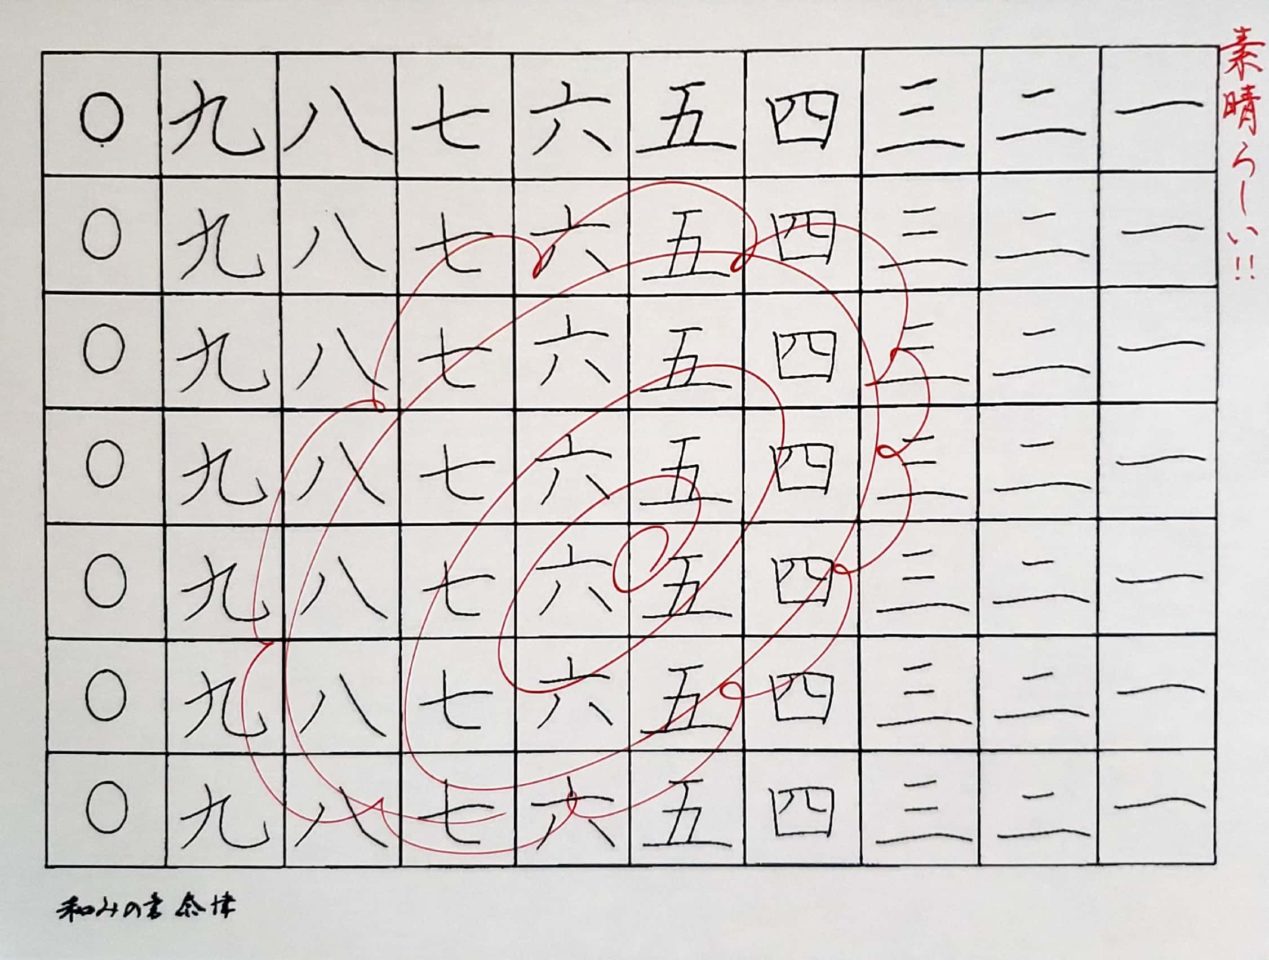 素晴らしい!!
一一一一一一一
二二二二二二二
三三三三三三三
四四四四四四四
五五五五五五五
六六六六六六六
七七七七七七七
八八八八八八八
九九九九九九九
〇〇〇〇〇〇〇
和みの書